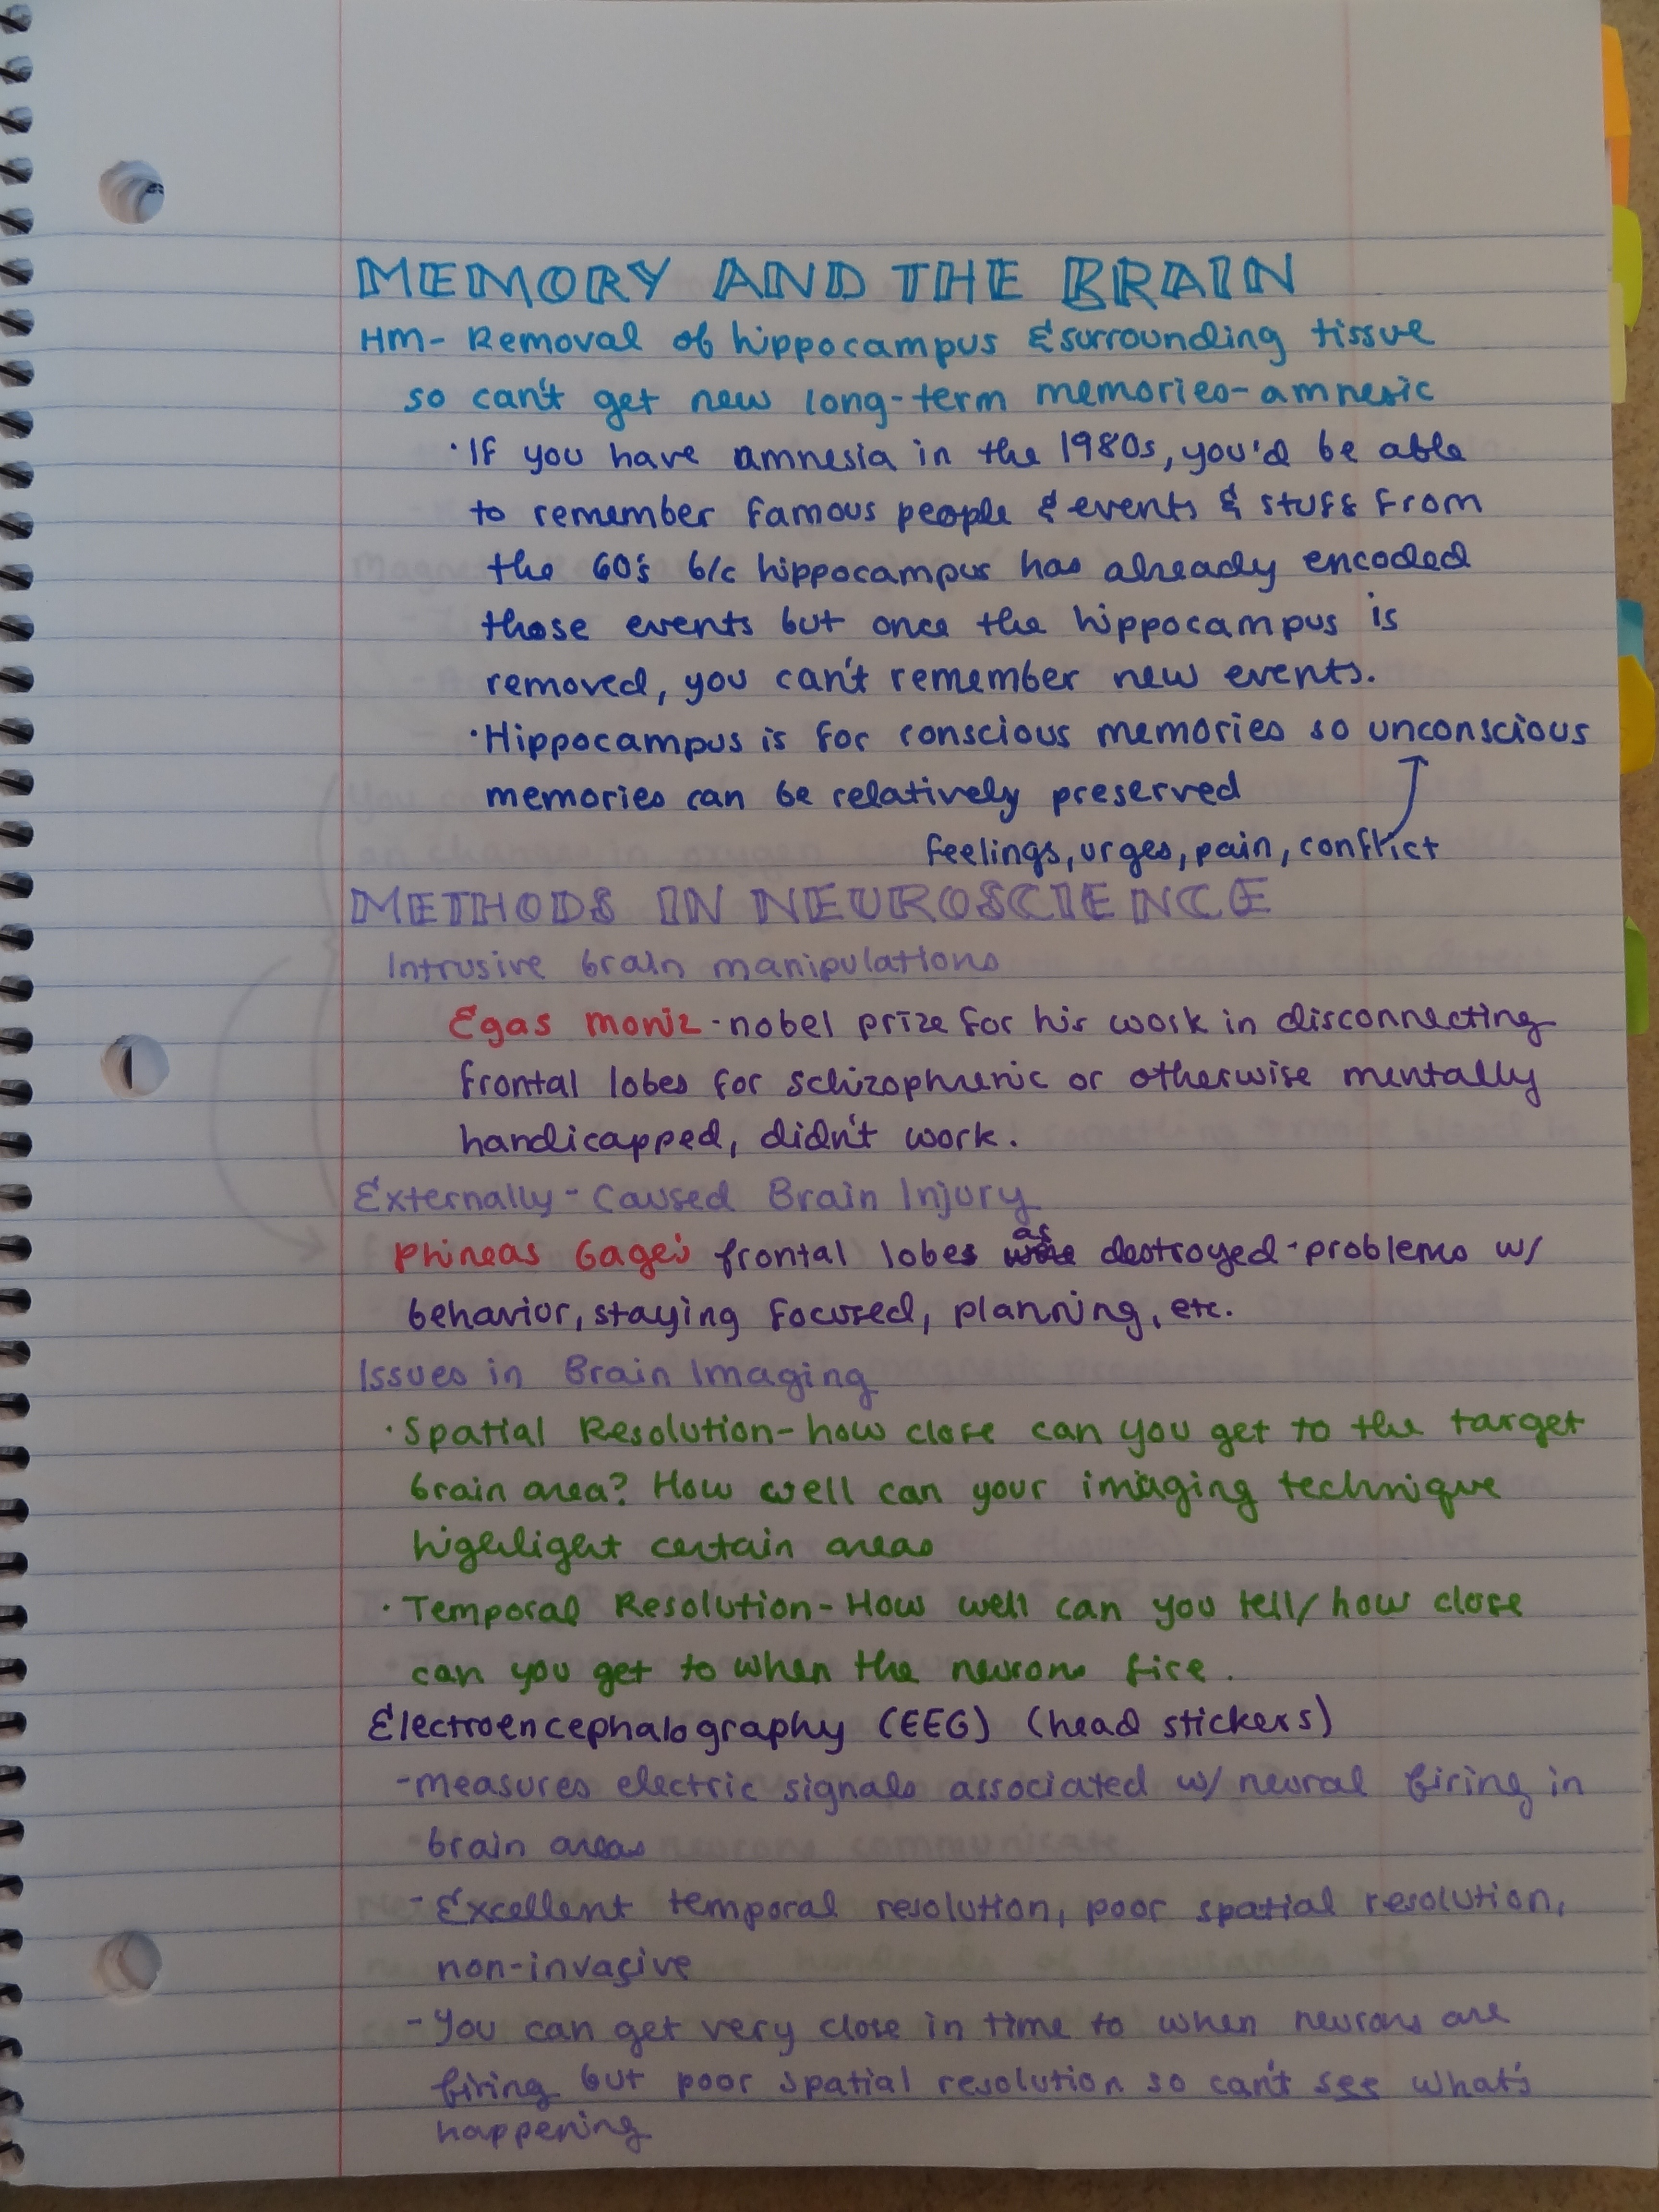 MEMORY AND THE BRAIN
HM- Removal of hippocampus & surrounding tissue
so can't get new long-term memories-amnesic
·If you have amnesia in the 1980s, you'd be able
to remember famous people & events & stuff from
the 60's b/c hippocampus has already encoded
those events but once the hippocampus is
removed, you can't remember new events.
·Hippocampus is for conscious memories so unconscious
memories can be relatively preserved
feelings, urges, pain, conflict
METHODS IN NEUROSCIENCE
Intrusive brain manipulations
Egas Moniz-nobel prize for his work in disconnecting
frontal lobes for schizophrenic or otherwise mentally
handicapped, didn't work.
Externally-Caused Brain Injury
Phineas Gage's frontal lobes as destroyed-problems w/
behavior, staying focused, planning, etc.
Issues in Brain Imaging
·Spatial Resolution-how close can you get to the target
brain area? How well can your imaging technique
highlight certain areas
·Temporal Resolution-How well can you tell/how close
can you get to when the neurons fire.
Electroencephalography (EEG) (head stickers)
-measures electric signals associated w/ neural firing in
brain areas
-Excellent temporal resolution, poor spatial resolution,
non-invasive
-You can get very close in time to when neurons are
firing but poor spatial resolution so can't see what's
happening